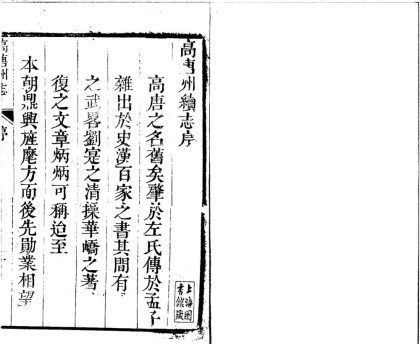 高唐州續志序
高唐之名舊矣肇於左氏傳於孟子
雜出於史漢百家之書其間有
之武畧劉寔之清操華嶠之著
復之文章炳炳可稱迨至
本朝鼎興旌麾方面後先勛業相望
高唐州志
序
上海圖書館藏